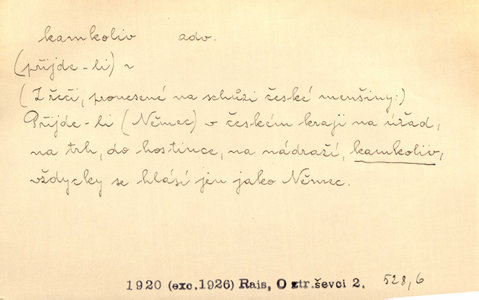 kamkoliv adv.
(přijde-li) ~
(Z řeči, pronesené na schůzi české menšiny:)
Přijde-li (Němec) v českém kraji na úřad,
na trh, do hostince, na nádraží, kamkoliv,
vždycky se hlásí jen jako Němec.
1920 (exc.1926) Rais, O ztr.ševci 2. 528,6